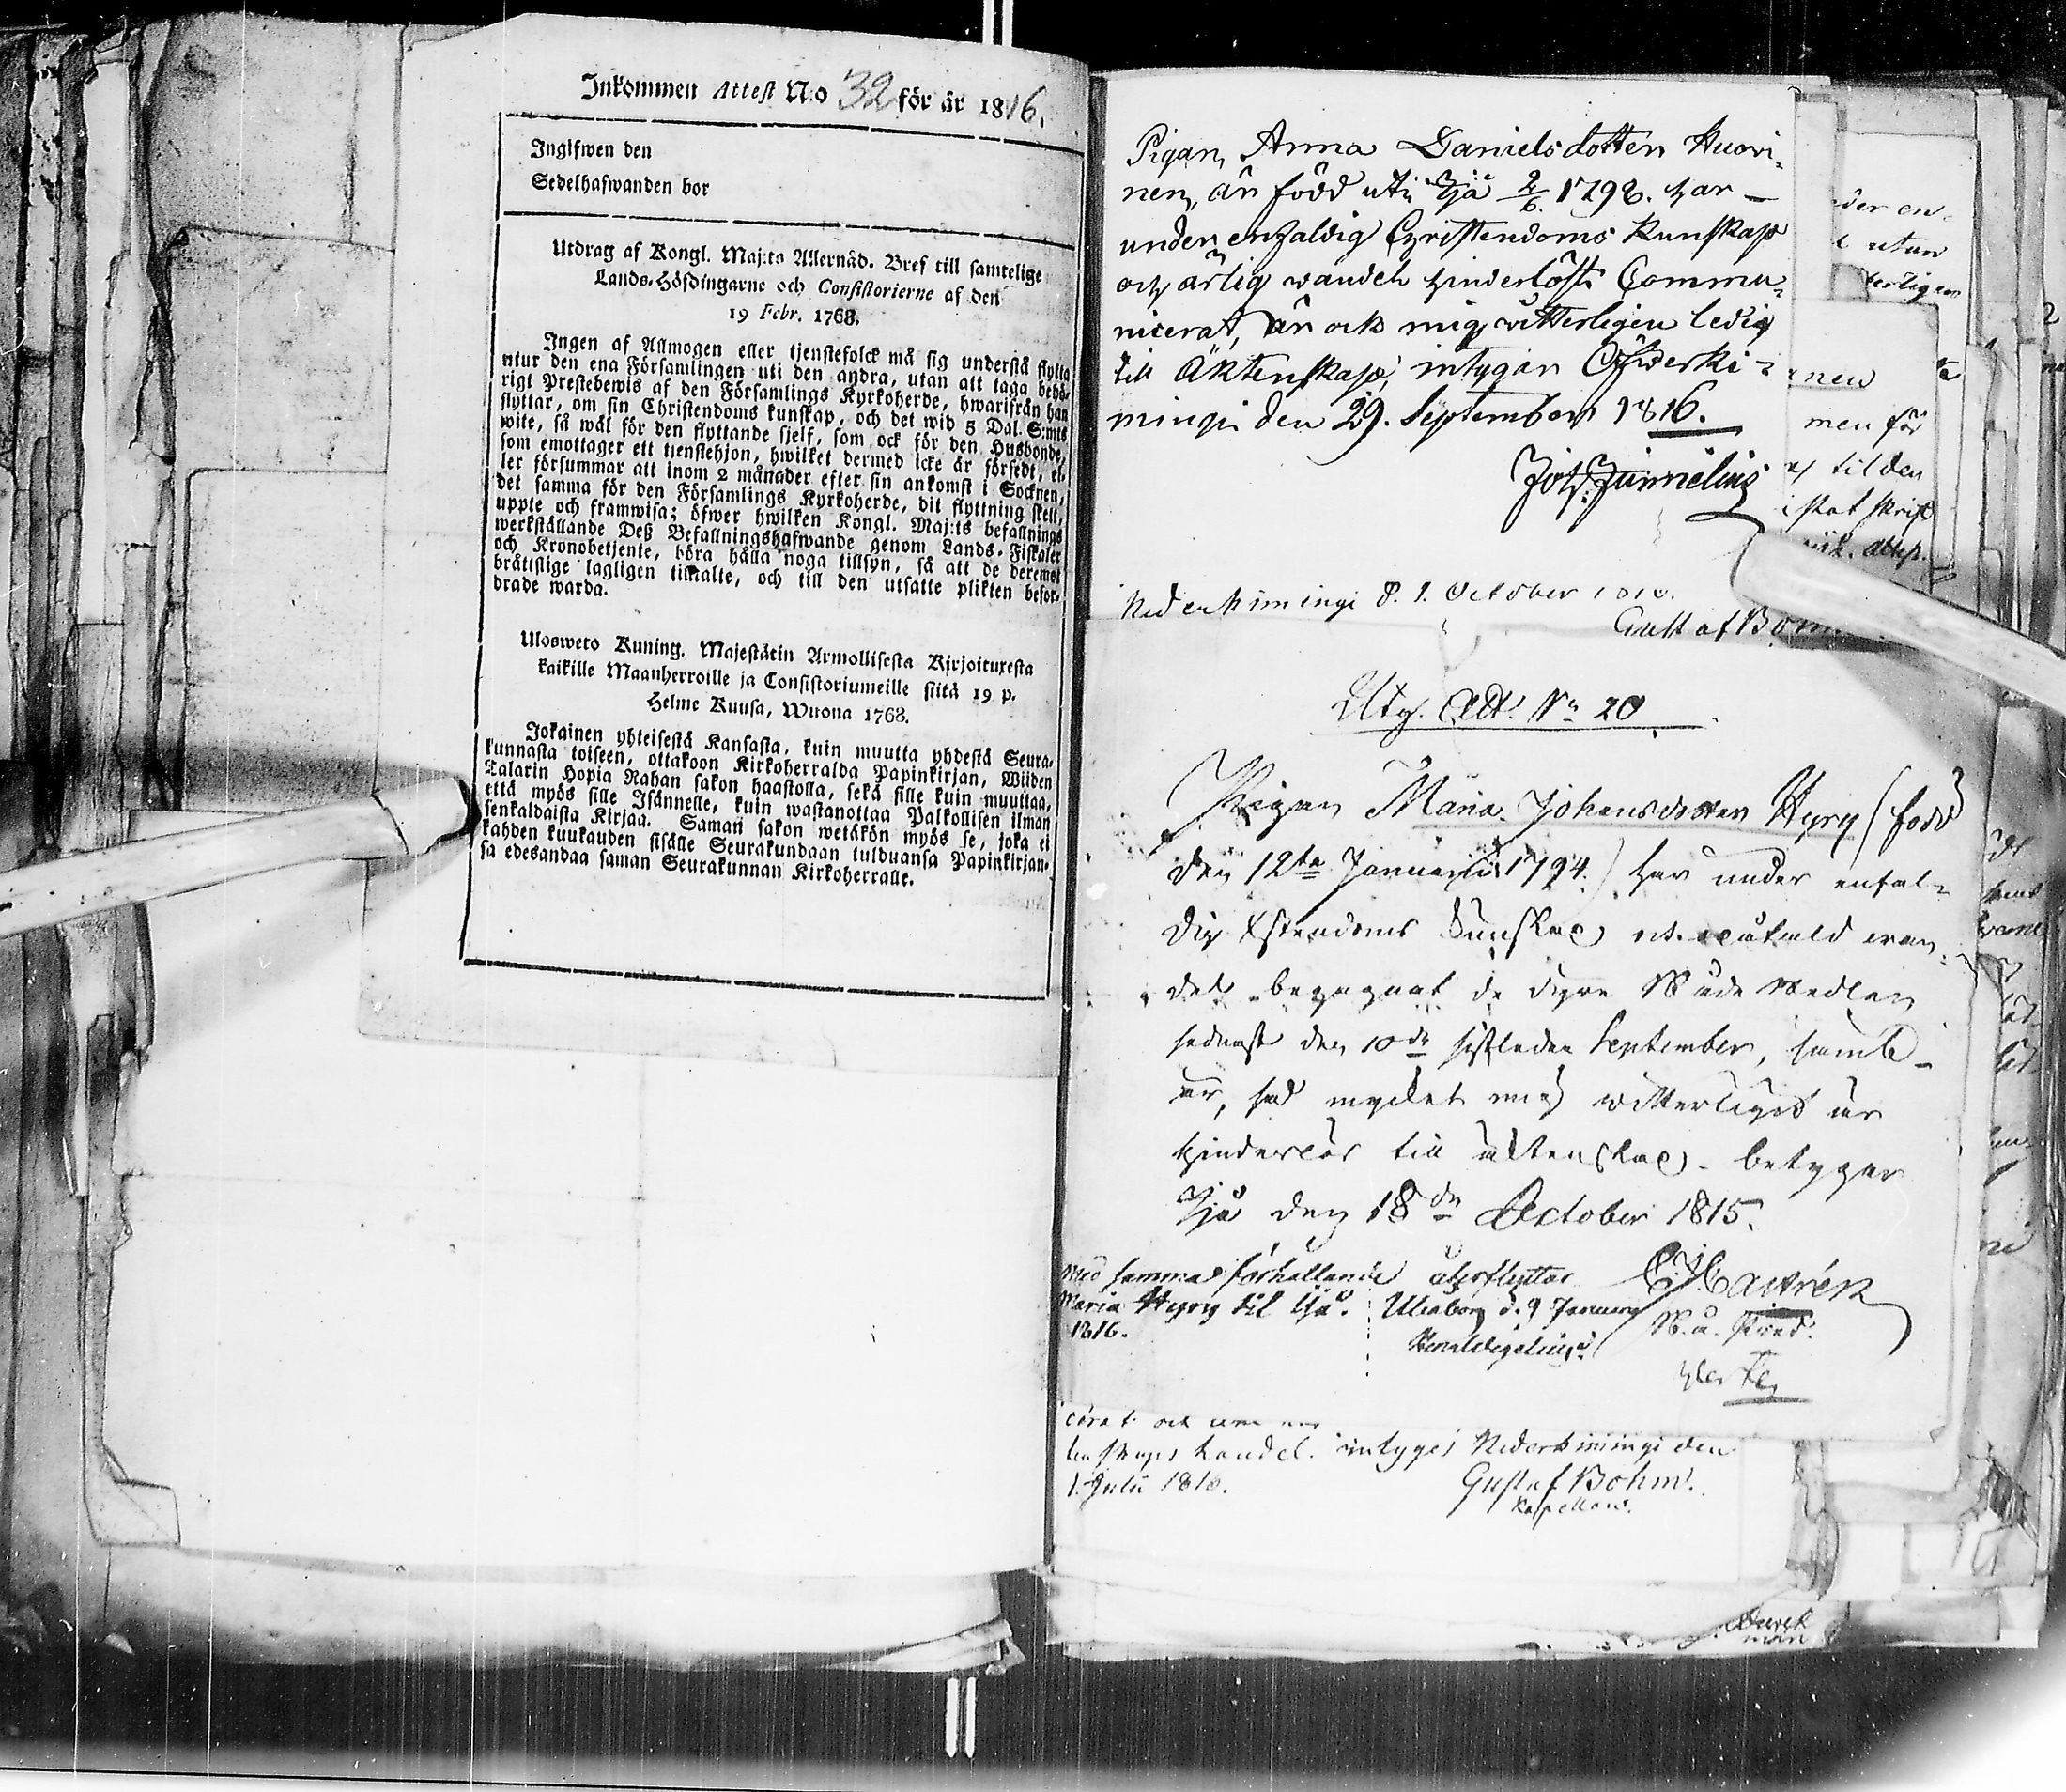 Inkommen Attest N:o 32 för år 1816.
Ingifwen den
Sedelhafwanden bor
Utdrag af Kongl. Maj:ts Allernåd. Bref till samtelige
Lands-Höfdingarne och Consistorierne af den
19 Febr. 1768.
Ingen af Allmogen eller tjenstefolck må sig understå flytta
utur den ena Församlingen uti den andra, utan att taga behö-
rigt Prestebewis af den Församlings Kyrkoherde, hwarifrån han
flyttar, om sin Christendoms kunskap, och det wid 5 Dal. S:mts
wite, så wäl för den flyttande sjelf, som ock för den Husbonde,
som emottager ett tjenstehjon, hwilket dermed icke är försedt, el-
ler försummar att inom 2 månader efter sin ankomst i Socknen,
det samma för den Församlings Kyrkoherde, dit flyttning skett,
uppte och framwisa; öfwer hwilken Kongl. Maj:ts befallnings
werkställande Deß Befallningshafwande genom Lands-Fiskaler
och Kronobetjente, böra hålla noga tillsyn, så att de deremot
bråttslige lagligen tilltalte, och till den utsatte plikten befor-
drade warda.
Ulosweto Kuning. Majestätin Armollisesta Kirjoituxesta
kaikille Maanherroille ja Consistoriumeille siitä 19 p.
Helme Kuusa, Wuona 1768.
Jokainen yhteisestä Kansasta, kuin muutta yhdestä Seura-
kunnasta toiseen, ottakoon Kirkoherralda Papinkirjan, Wiiden
Talarin Hopia Rahan sakon haastolla, sekä sille kuin muuttaa,
että myös sille Isännelle, kuin wastanottaa Palkollisen ilman
senkaldaista Kirjaa. Saman sakon wetäkön myös se, joka ei
kahden kuukauden sisälle Seurakundaan tulduansa Papinkirjan-
sa edesandaa saman Seurakunnan Kirkoherralle.
Pigan, Anna Danielsdotter Huovi-
nen, är född uti Ijå 2/6. 1798. har
under enfaldig Christendoms kunskap
och ärlig wandel hinderlöst Commu-
nicerat, är ock mig witterligen ledig
till Äktenskap, intygar Öfwerki-
mingi den 29. September 1816.
Joh: Junnelius
Nederkimingi d. 1. October
Gustaf
Utg. Att. No 20
Pigan Maria Johansdotter Hyry (född
den 12te Januarii 1794.) har under enfal-
dig Xstendoms kunskap och
del begagnat de dyre Nåde Medlen
sednast den 10de sistledne September, samt
är, så mycket mig witterligit är
hinderlös till äktenskap, betygar
Ijå den 18de October 1815.
C. H. Castrén
N. a. Pred.
Med samma förhållande återflyttar
Maria Hyry til Ijå. Uleåborg d. 9 January
1816.
cerat och
tenskaps handel. intygas Nederkimingi den
1. Julii 1816.
Gustaf Bohm.
Kapellan.
eder en-
utan
men för
til den